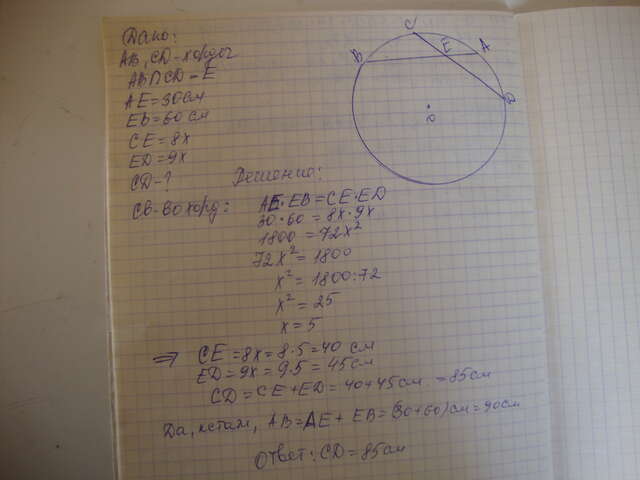 Дано:
AB, CD - хорды
AB∩CD = E
AE = 30см
EB = 60 см
CE = 8x
ED = 9x
CD - ?
Решение:
Св-во хорд: AE·EB = CE·ED
30·60 = 8x·9x
1800 = 72x²
72x² = 1800
x² = 1800:72
x² = 25
x = 5
⇒ CE = 8x = 8·5 = 40 см
ED = 9x = 9·5 = 45см
CD = CE + ED = 40 + 45см = 85см
Да, кстати, AB = AE + EB = (30 + 60)см = 90см
Ответ: CD = 85см
C
B
E
A
D
O